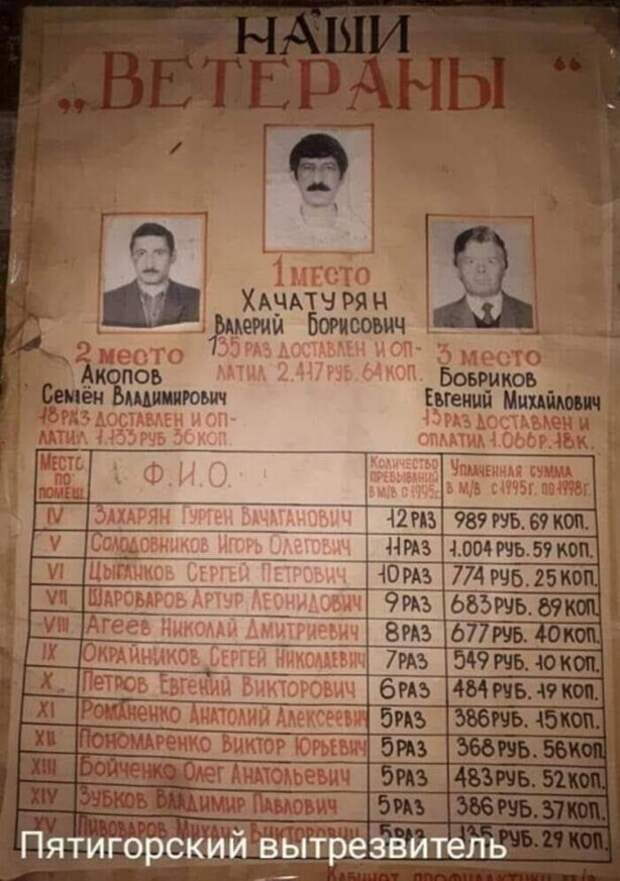 НАШИ
„ВЕТЕРАНЫ“
1 место
ХАЧАТУРЯН
Валерий Борисович
135 раз доставлен и оп-
латил 2.417 руб. 64 коп.
2 место
Акопов
Семён Владимирович
18 раз доставлен и оп-
латил 1.133 руб 36 коп.
3 место
Бобриков
Евгений Михайлович
13 раз доставлен и
оплатил 1.066 р. 18 к.
Место по помещ. Ф.И.О. Количество пребываний в м/в с 1995г. Уплаченная сумма в м/в с 1995г. по 1998г.
IV Захарян Гурген Вачаганович 12 раз 989 руб. 69 коп.
V Солодовников Игорь Олегович 11 раз 1.004 руб. 59 коп.
VI Цыганков Сергей Петрович 10 раз 774 руб. 25 коп.
VII Шароваров Артур Леонидович 9 раз 683 руб. 89 коп.
VIII Агеев Николай Дмитриевич 8 раз 677 руб. 40 коп.
IX Окрайников Сергей Николаевич 7 раз 549 руб. 10 коп.
X Петров Евгений Викторович 6 раз 484 руб. 19 коп.
XI Романенко Анатолий Алексеевич 5 раз 386 руб. 15 коп.
XII Пономаренко Виктор Юрьевич 5 раз 368 руб. 56 коп.
XIII Бойченко Олег Анатольевич 5 раз 483 руб. 52 коп.
XIV Зубков Владимир Павлович 5 раз 386 руб. 37 коп.
XV Пивоваров Михаил Викторович 5 раз 135 руб. 29 коп.
Пятигорский вытрезвитель
Кабинет профилактики